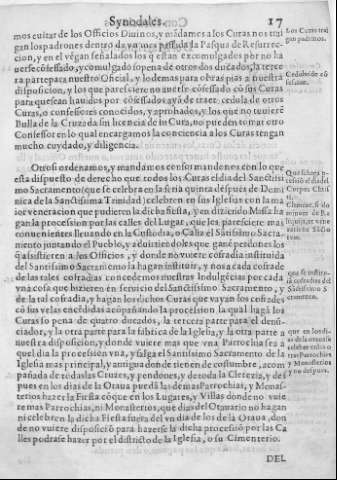 Synodales. 17
mos euitar de los Officios Diuinos, y mãdamos a los Curas nos trai
gan los padrones dentro de vn mes passada la Pasqua de Resurrec-
cion, y en el vengan señalados los q̃ estan excomulgados por no ha
uerse cõfessado, y comulgado so pena de otros dos ducados, la terce
ra parte para nuestro Oficial, y lo demas para obras pias a nuestra
disposicion, y los que paresciere no auerse cõfessado cõ sus Curas
para que sean hauidos por cõfessados ayã de traer cedula de otros
Curas, o confessores conocidos, y aprobados, y los que no tuuierẽ
Bulla de la Cruzada sin licencia de su Cura, no pueden tomar otro
Confessor en lo qual encargamos la conciencia a los Curas tengan
mucho cuydado, y diligencia.
Los Curas trai
gan padrones.
Cedula de cõ
fession.
Otrosi ordenamos, y mandamos conformandonos con lo que
esta dispuesto de derecho que todos los Curas el dia del Sanctissi
mo Sacramento (que se celebra en la feria quinta despues de Domi
nica de la Sanctissima Trinidad) celebren en sus Iglesias con la ma
ior veneracion que pudieren la dicha fiesta, y en diziendo Missa ha
gan la procession por las calles del Lugar, que les paresciere mas
conuenientes lleuando en la Custodia, o Caliz el Sãtissimo Sacra-
miento juntando el Pueblo, y aduirtiendoles que ganẽ perdones los
q̃ assistieren a los Officios, y donde no vuiere cofradia instituida
del Sanctissimo Sacramento la hagan instituir, y nos a cada cofrade
de las tales cofradias concedemos nuestras Indulgẽcias por cada
vna cosa que hizieren en seruicio del Sanctissimo Sacramento, y
de la tal cofradia, y hagan los dichos Curas que vayan los cofrades
cõ sus velas encẽdidas acõpañando la procession la qual hagã los
Curas so pena de quatro ducados, la tercera parte para el denũ-
ciador, y la otra parte para la fabrica de la Iglesia, y la otra parte a
nuestra disposicion, y donde vuiere mas que vna Parrochia sea a
quel dia la procession vna, y salga el Santissimo Sacramento de la
Iglesia mas principal, y antigua donde tienen de costumbre, acom
pañada de todas las Cruzes, y pendones, y de toda la Clerezia, y des
pues en los dias de la Otaua puedã las demas Parrochias, y Monas-
terios hazer la Fiesta cõ que en los Lugares, y Villas donde no vuie
re mas Parrochias, ni Monasterios, que dias del Otauario no hagan
ni celebren la dicha Fiesta fuera del vn dia de los de la Otaua, don
de no vuiere disposiciõ para hazerse la dicha processiõ por las Ca
lles podrase hazer por el districto de la Iglesia, o su Cimenterio.
Corpus Christi
DEL